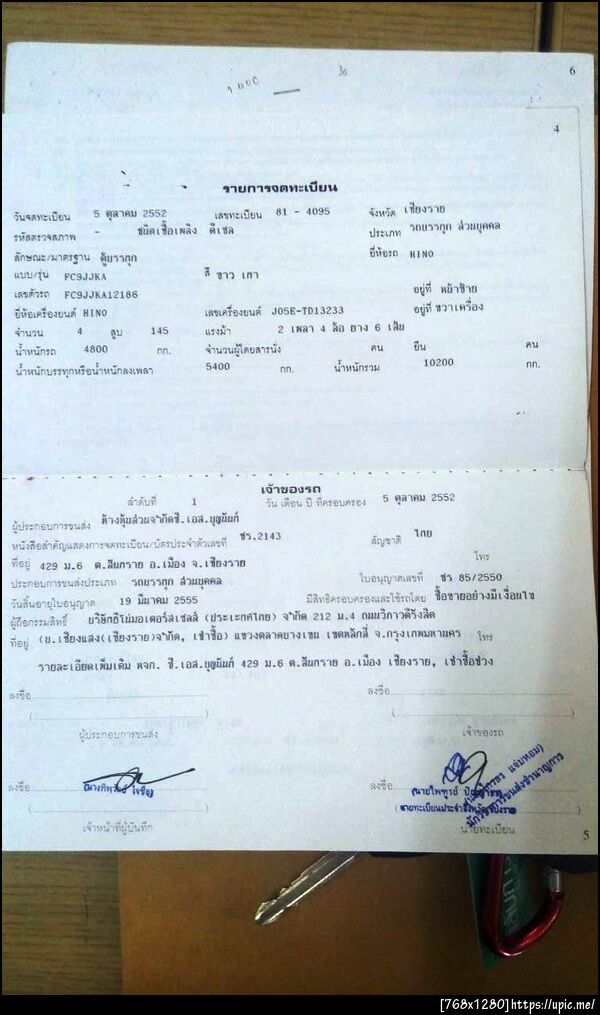 6
4
รายการจดทะเบียน
วันจดทะเบียน 5 ตุลาคม 2552 เลขทะเบียน 81 - 4095 จังหวัด เชียงราย
รหัสตรวจสภาพ - ชนิดเชื้อเพลิง ดีเซล ประเภท รถบรรทุก ส่วนบุคคล
ลักษณะ/มาตรฐาน ตู้บรรทุก ยี่ห้อรถ HINO
แบบ/รุ่น FC9JJKA สี ขาว เทา
เลขตัวรถ FC9JJKA12186 อยู่ที่ หน้าซ้าย
ยี่ห้อเครื่องยนต์ HINO เลขเครื่องยนต์ J05E-TD13233 อยู่ที่ ขวาเครื่อง
จำนวน 4 สูบ 145 แรงม้า 2 เพลา 4 ล้อ ยาง 6 เส้น
น้ำหนักรถ 4800 กก. จำนวนผู้โดยสารนั่ง คน ยืน คน
น้ำหนักบรรทุกหรือน้ำหนักลงเพลา 5400 กก. น้ำหนักรวม 10200 กก.
เจ้าของรถ
ลำดับที่ 1 วัน เดือน ปี ที่ครอบครอง 5 ตุลาคม 2552
ผู้ประกอบการขนส่ง ห้างหุ้นส่วนจำกัดซี.เอส.บุญนันท์
หนังสือสำคัญแสดงการจดทะเบียน/บัตรประจำตัวเลขที่ ชร.2143 สัญชาติ ไทย
ที่อยู่ 429 ม.6 ต.สันทราย อ.เมือง จ.เชียงราย โทร
ประกอบการขนส่งประเภท รถบรรทุก ส่วนบุคคล ใบอนุญาตเลขที่ ชร 85/2550
วันสิ้นอายุใบอนุญาต 19 มีนาคม 2555 มีสิทธิครอบครองและใช้รถโดย ซื้อขายอย่างมีเงื่อนไข
ผู้ถือกรรมสิทธิ์ บริษัทฮีโน่มอเตอร์สเซลส์ (ประเทศไทย) จำกัด 212 ม.4 ถนนวิภาวดีรังสิต
ที่อยู่ (บ.เชียงแสง(เชียงราย)จำกัด, เช่าซื้อ) แขวงตลาดบางเขน เขตหลักสี่ จ.กรุงเทพมหานคร โทร
รายละเอียดเพิ่มเติม หจก. ซี.เอส.บุญนันท์ 429 ม.6 ต.สันทราย อ.เมือง เชียงราย, เช่าซื้อช่วง
ลงชื่อ ลงชื่อ
( ) ( )
ผู้ประกอบการขนส่ง เจ้าของรถ
ลงชื่อ ลงชื่อ
เจ้าหน้าที่ผู้บันทึก นายทะเบียน
5
[768x1280]https://upic.me/